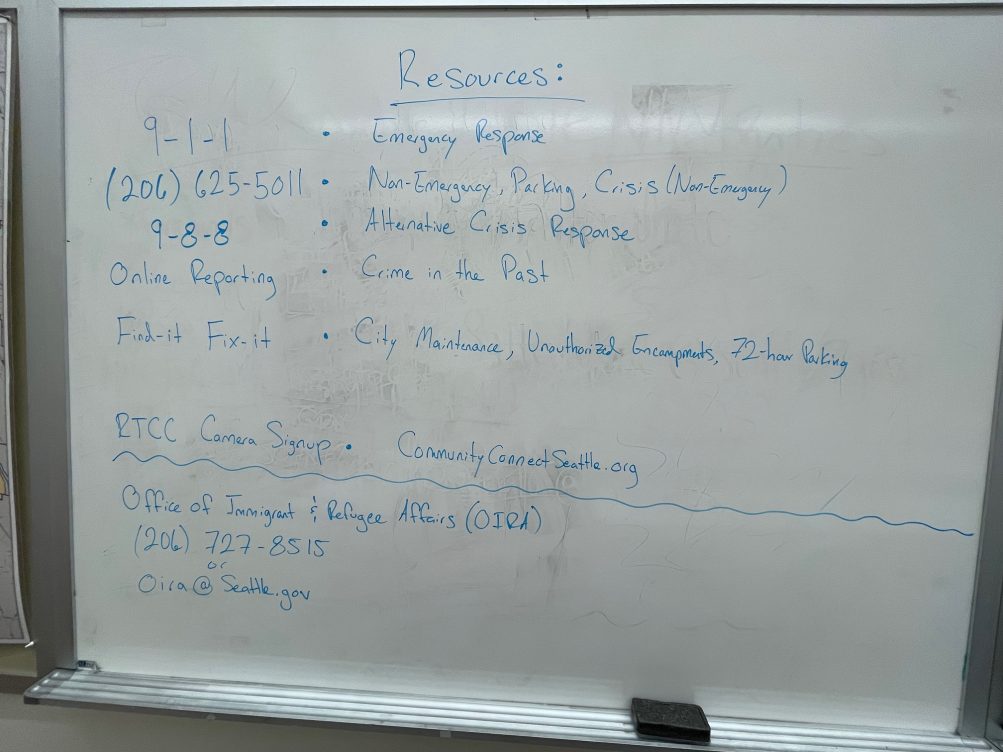 Resources:
9-1-1 • Emergency Response
(206) 625-5011 • Non-Emergency, Parking, Crisis (Non-Emergency)
9-8-8 • Alternative Crisis Response
Online Reporting • Crime in the Past
Find-it Fix-it • City Maintenance, Unauthorized Encampments, 72-hour Parking
RTCC Camera Signup • CommunityConnectSeattle.org
Office of Immigrant & Refugee Affairs (OIRA)
(206) 727-8515
or
Oira@Seattle.gov